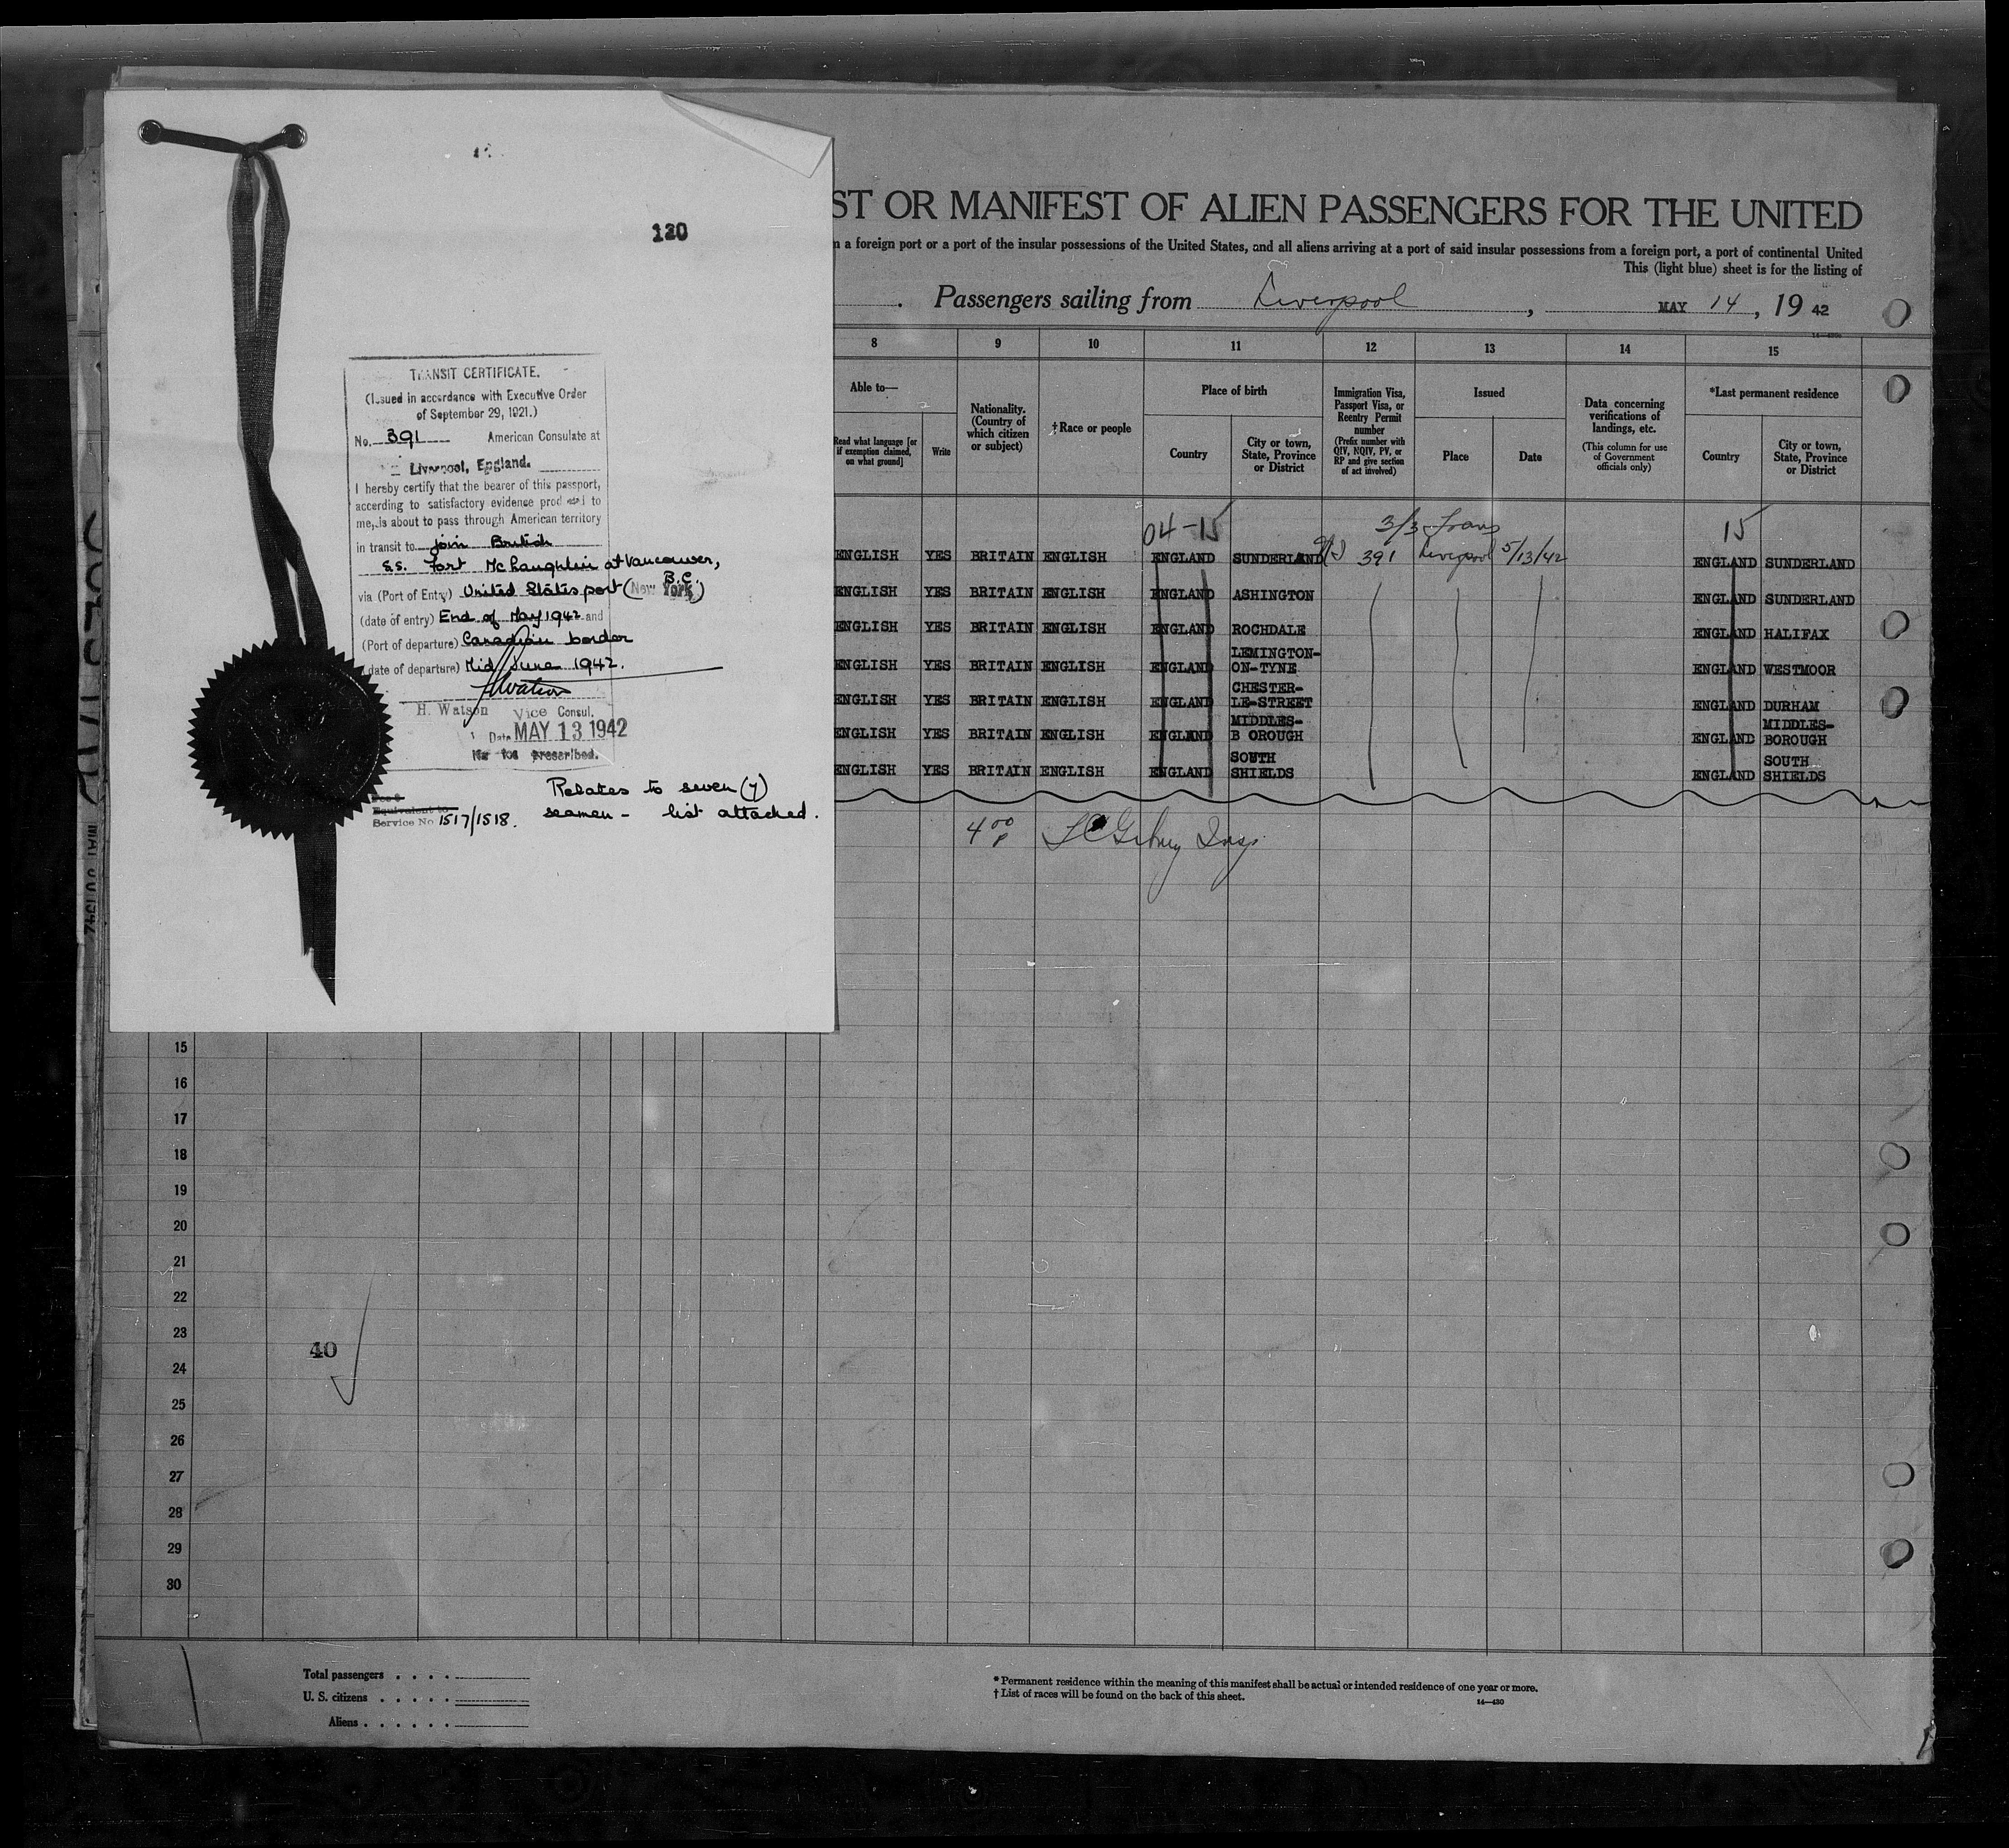 120
TRANSIT CERTIFICATE.
(Issued in accordance with Executive Order
of September 29, 1921.)
No. 391 American Consulate at
Liverpool, England.
I hereby certify that the bearer of this passport,
according to satisfactory evidence produced to
me, is about to pass through American territory
in transit to join British
S.S. Fort McLaughlin at Vancouver,
B.C.
via (Port of Entry) United States port (New York)
(date of entry) End of May 1942 and
(Port of departure) Canadian border
(date of departure) Mid June 1942.
HWatson
H. Watson Vice Consul.
Date MAY 13 1942
No fee prescribed.
Equivalent to
Service No 1517/1518.
Relates to seven (7)
seamen - list attached.
ST OR MANIFEST OF ALIEN PASSENGERS FOR THE UNITED
a foreign port or a port of the insular possessions of the United States, and all aliens arriving at a port of said insular possessions from a foreign port, a port of continental United
This (light blue) sheet is for the listing of
Passengers sailing from Liverpool, MAY 14, 19 42
8 9 10 11 12 13 14 15
Able to—
Read what language [or if exemption claimed, on what ground]
Write
Nationality. (Country of which citizen or subject)
†Race or people
Place of birth
Country
City or town, State, Province or District
Immigration Visa, Passport Visa, or Reentry Permit number
(Prefix number with QIV, NQIV, PV, or RP and give section of act involved)
Issued
Place
Date
Data concerning verifications of landings, etc.
(This column for use of Government officials only)
*Last permanent residence
Country
City or town, State, Province or District
04-15 3/3 Trans 15
ENGLISH YES BRITAIN ENGLISH ENGLAND SUNDERLAND 391 Liverpool 5/13/42 ENGLAND SUNDERLAND
ENGLISH YES BRITAIN ENGLISH ENGLAND ASHINGTON ENGLAND SUNDERLAND
ENGLISH YES BRITAIN ENGLISH ENGLAND ROCHDALE ENGLAND HALIFAX
ENGLISH YES BRITAIN ENGLISH ENGLAND LEMINGTON-ON-TYNE ENGLAND WESTMOOR
ENGLISH YES BRITAIN ENGLISH ENGLAND CHESTER-LE-STREET ENGLAND DURHAM
ENGLISH YES BRITAIN ENGLISH ENGLAND MIDDLES-B OROUGH ENGLAND MIDDLES-BOROUGH
ENGLISH YES BRITAIN ENGLISH ENGLAND SOUTH SHIELDS ENGLAND SOUTH SHIELDS
15
16
17
18
19
20
21
22
23
40
24
25
26
27
28
29
30
Total passengers
U. S. citizens
Aliens
* Permanent residence within the meaning of this manifest shall be actual or intended residence of one year or more.
† List of races will be found on the back of this sheet.
14—430